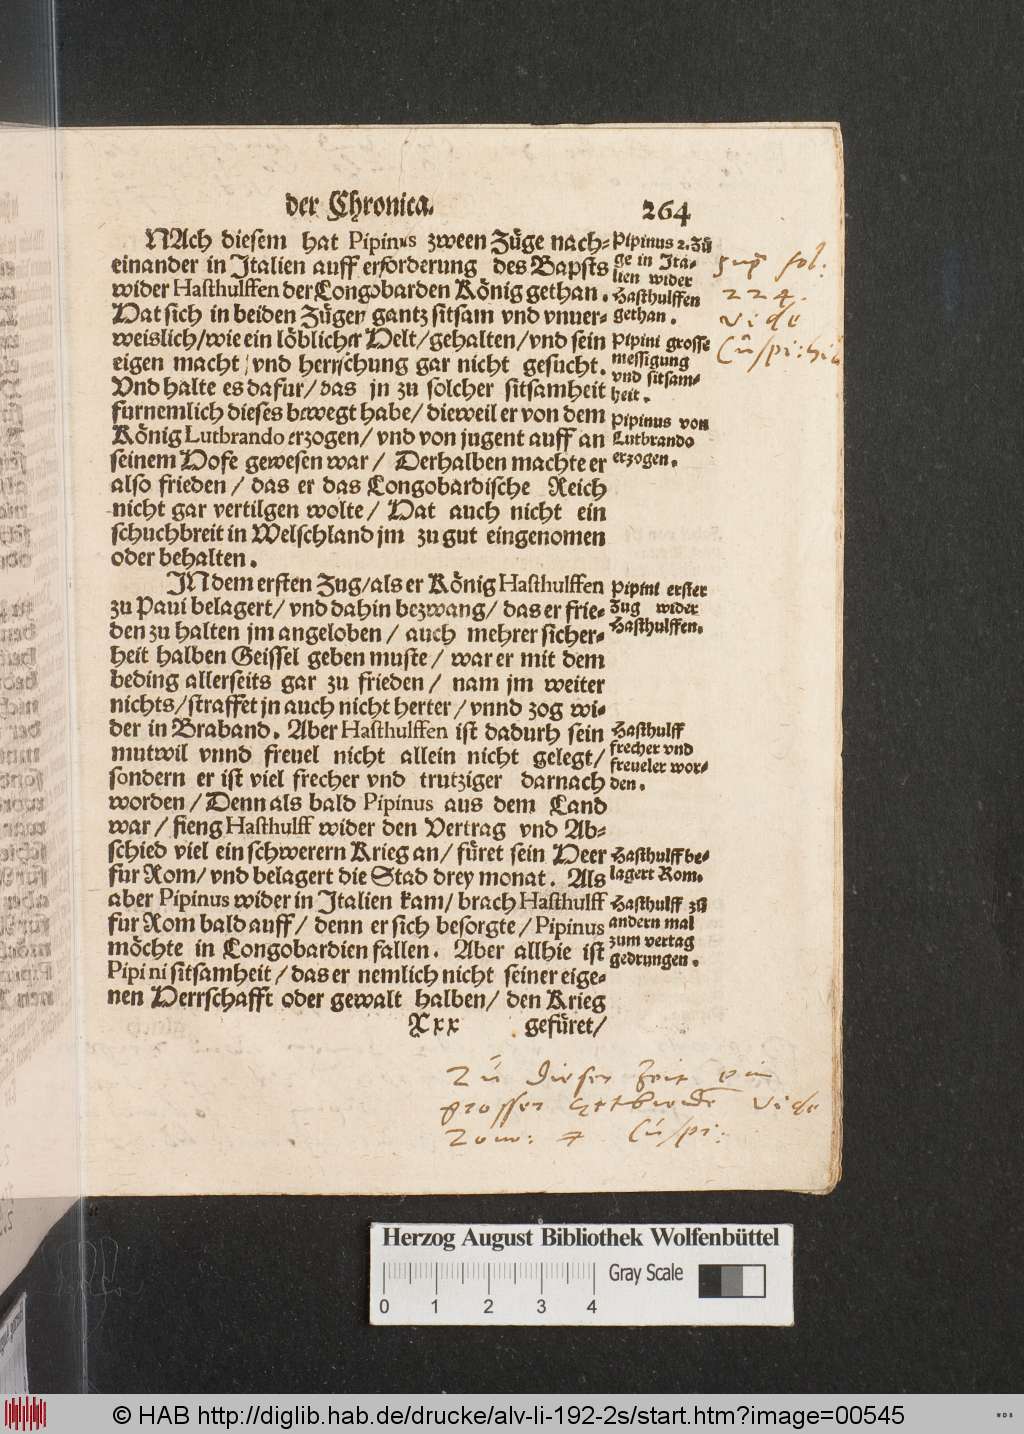 der Chronica.
264
NAch diesem hat Pipinus zween Züge nach-
einander in Italien auff erforderung des Bapsts
wider Hasthulffen der Longobarden König gethan.
Hat sich in beiden Zügen gantz sitsam vnd vnuer-
weislich/wie ein löblicher Helt/gehalten/vnd sein
eigen macht/vnd herrschung gar nicht gesucht.
Vnd halte es dafur/das jn zu solcher sitsamheit
furnemlich dieses bewegt habe/dieweil er von dem
König Lutbrando erzogen/vnd von jugent auff an
seinem Hofe gewesen war/Derhalben machte er
also frieden/das er das Longobardische Reich
nicht gar vertilgen wolte/Hat auch nicht ein
schuchbreit in Welschland jm zu gut eingenomen
oder behalten.
IN dem ersten Zug/als er König Hasthulffen
zu Paui belagert/vnd dahin bezwang/das er frie-
den zu halten jm angeloben/auch mehrer sicher-
heit halben Geissel geben muste/war er mit dem
beding allerseits gar zu frieden/nam jm weiter
nichts/straffet jn auch nicht herter/vnnd zog wi-
der in Braband. Aber Hasthulffen ist dadurh sein
mutwil vnnd freuel nicht allein nicht gelegt/
sondern er ist viel frecher vnd trutziger darnach
worden/Denn als bald Pipinus aus dem Land
war/fieng Hasthulff wider den Vertrag vnd Ab-
schied viel ein schwerern Krieg an/füret sein Heer
fur Rom/vnd belagert die Stad drey monat. Als
aber Pipinus wider in Italien kam/brach Hasthulff
fur Rom bald auff/denn er sich besorgte/Pipinus
möchte in Longobardien fallen. Aber allhie ist
Pipini sitsamheit/das er nemlich nicht seiner eige-
nen Herrschafft oder gewalt halben/den Krieg
Xxx
gefüret/
Pipinus 2. Zü
ge in Ita-
lien wider
Hasthulffen
gethan.
Pipini grosse
messigung
vnd sitsam-
heit.
Pipinus von
Lutbrando
erzogen.
Pipini erster
Zug wider
Hasthulffen.
Hasthulff
frecher vnd
freueler wor-
den.
Hasthulff be-
lagert Rom.
Hasthulff zů
andern mal
zum vertag
gedrungen.
sup fol:
224.
vide
Zu dieser Zeit ein
grosser vide
4 Cuspi:
Herzog August Bibliothek Wolfenbüttel
Gray Scale
0 1 2 3 4
© HAB http://diglib.hab.de/drucke/alv-li-192-2s/start.htm?image=00545
WDB